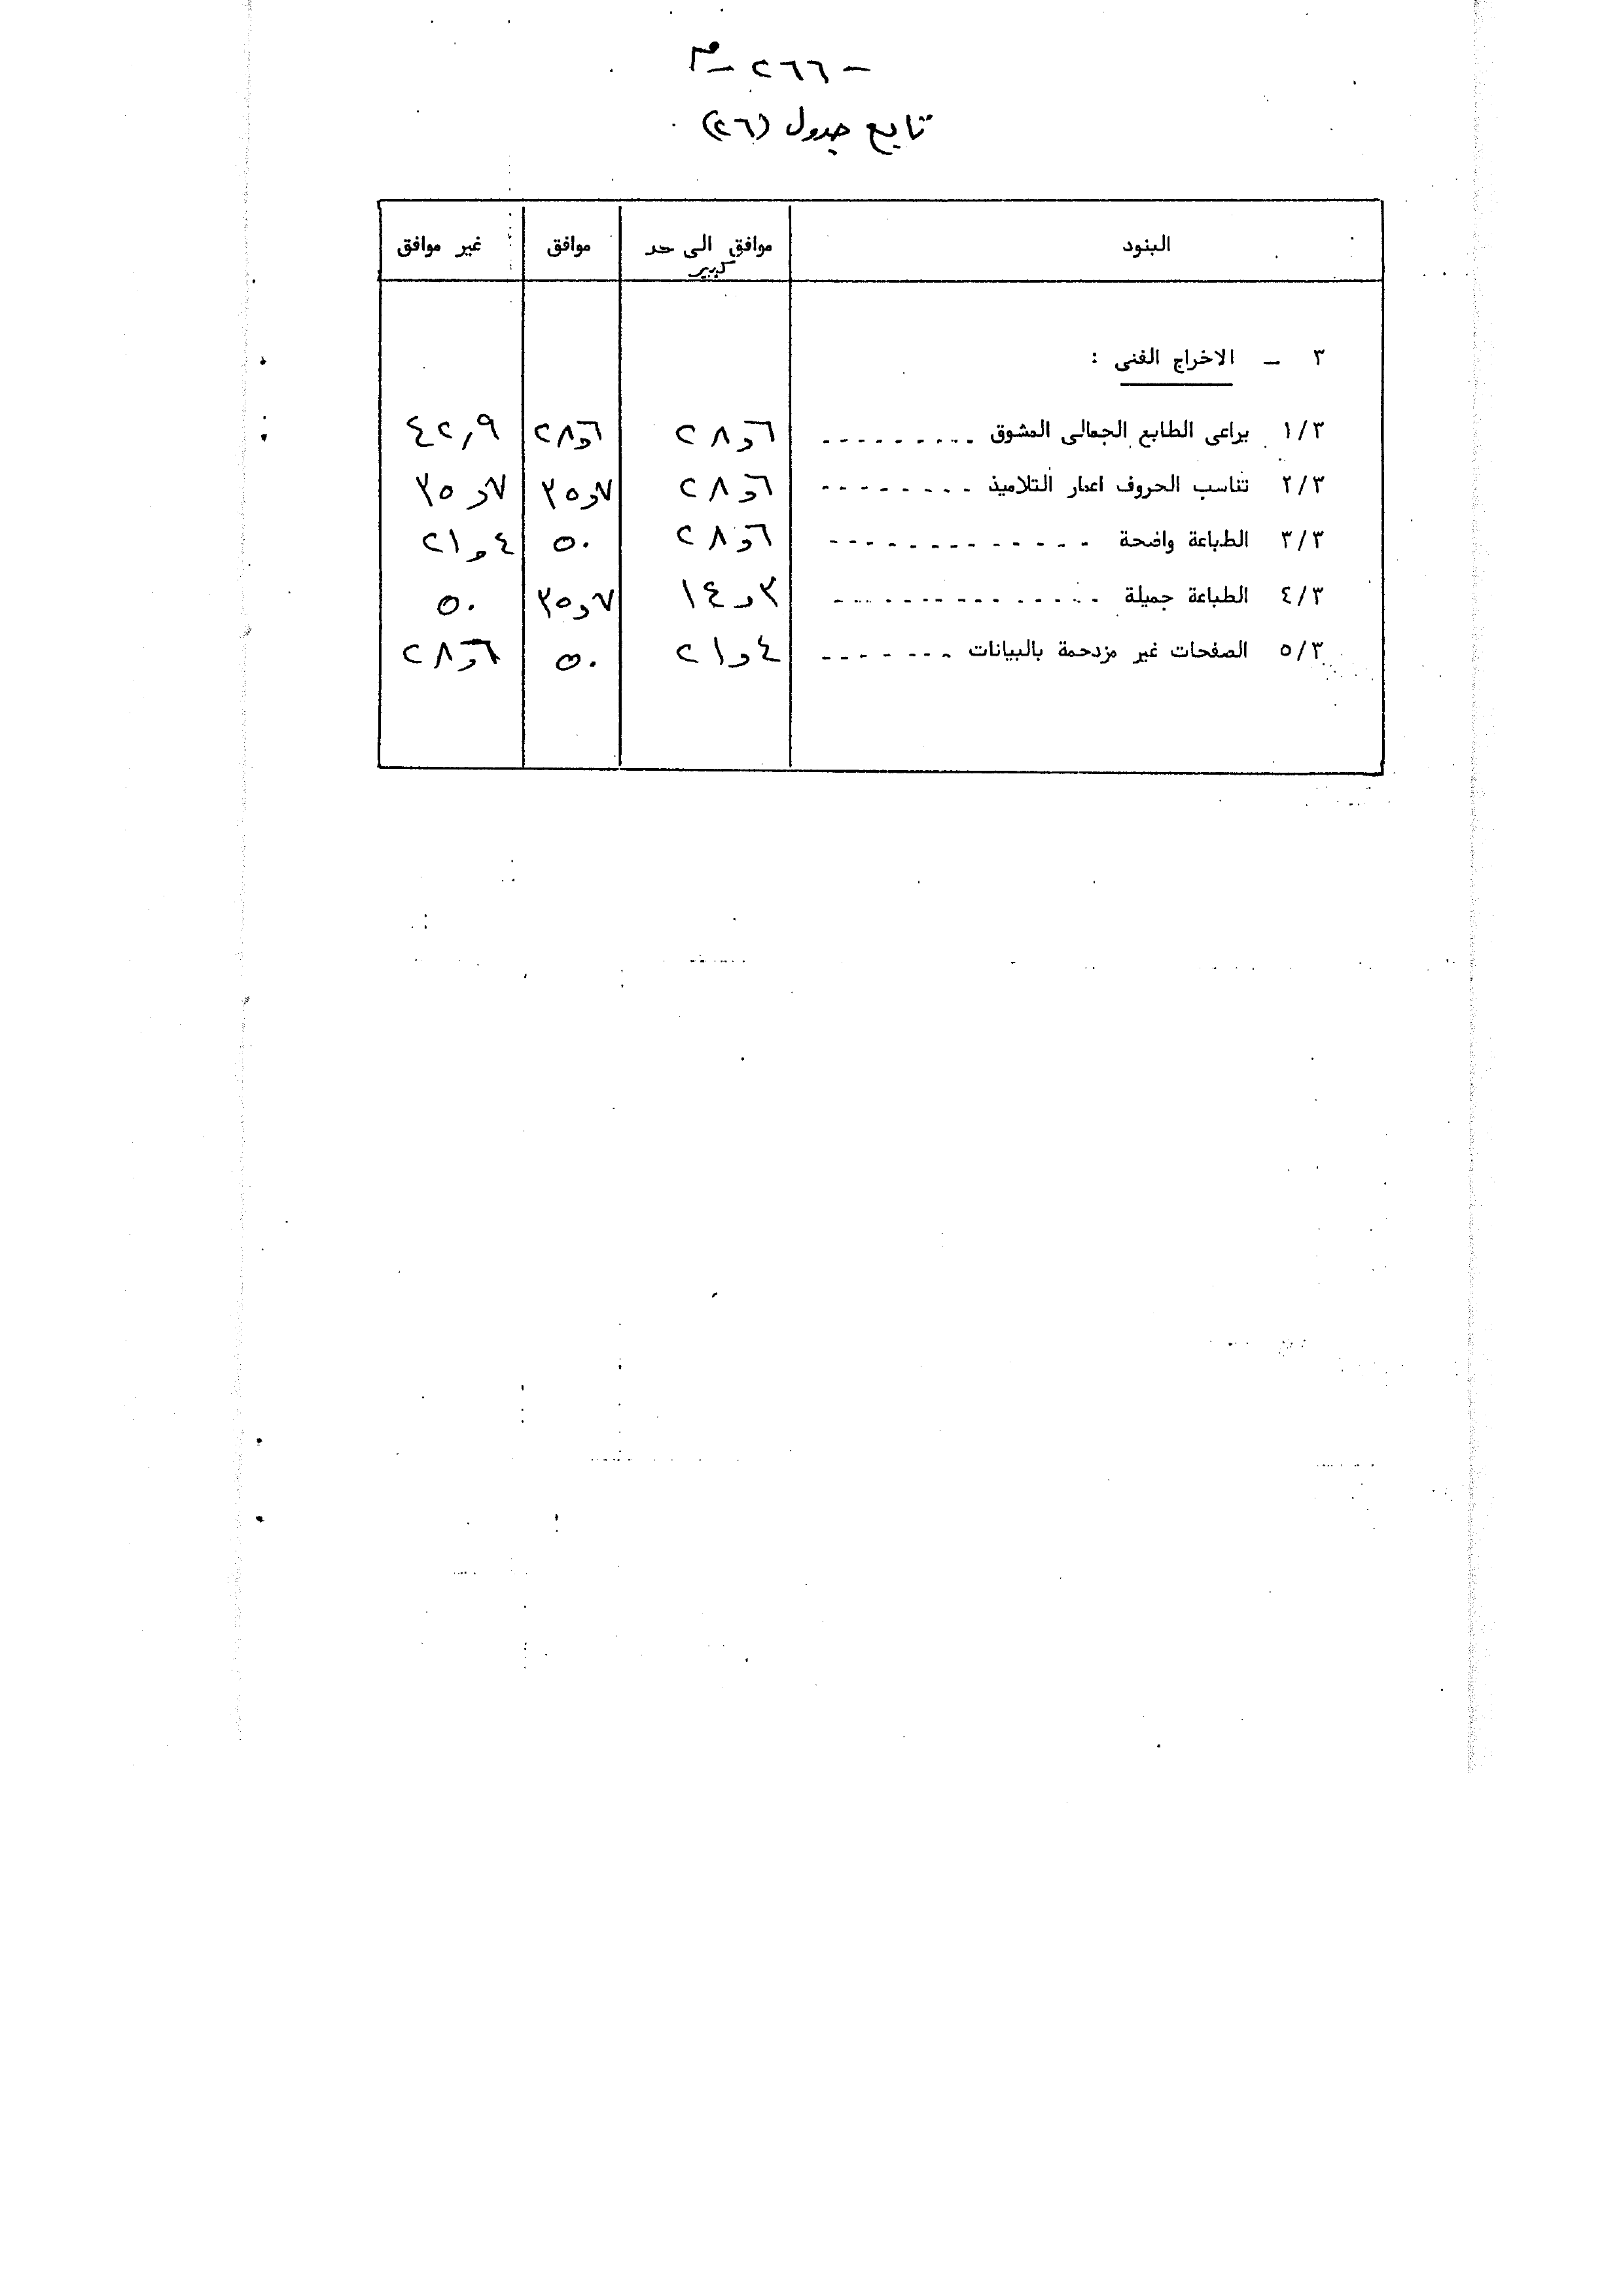 - ٢٦٦ - م
تابع جدول (٢٦)
البنود موافق الى حد كبير موافق غير موافق
٣ - الاخراج الفنى :
١/٣ يراعى الطابع الجمالى المشوق --------- ٢٨و٦ ٢٨و٦ ٤٢,٩
٢/٣ تناسب الحروف اعمار التلاميذ -------- ٢٨و٦ ٣٥و٧ ٣٥و٧
٣/٣ الطباعة واضحة ------------- ٢٨و٦ ٥٠ ٢١و٤
٤/٣ الطباعة جميلة ------------- ١٤و٣ ٣٥و٧ ٥٠
٥/٣ الصفحات غير مزدحمة بالبيانات ------- ٢١و٤ ٥٠ ٢٨و٦